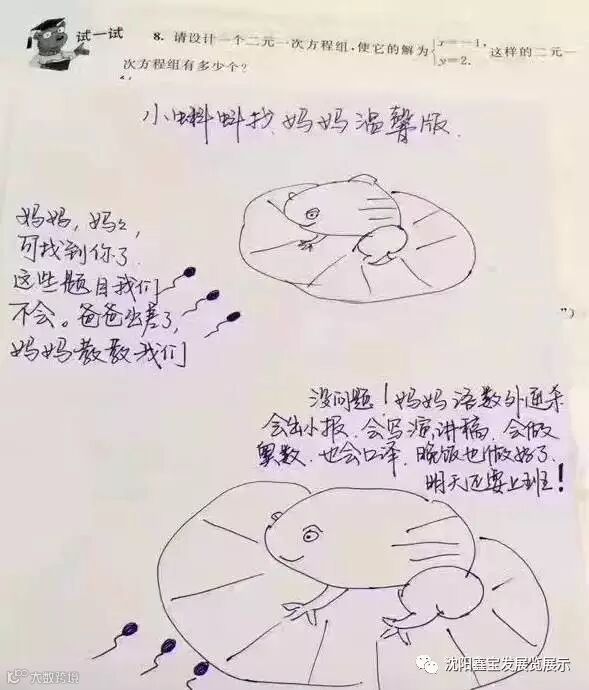 试一试
8. 请设计一个二元一次方程组,使它的解为{x=-1, y=2. 这样的二元一
次方程组有多少个?
小蝌蚪找妈妈温馨版.
妈妈,妈々,
可找到你了
这些题目我们
不会。爸爸出差了,
妈妈教教我们
")
没问题!妈妈语数外通杀
会出小报.会写演讲稿.会做
奥数.也会口译.晚饭也做好了.
明天还要上班!
大数跨境
沈阳鑫宝发展览展示